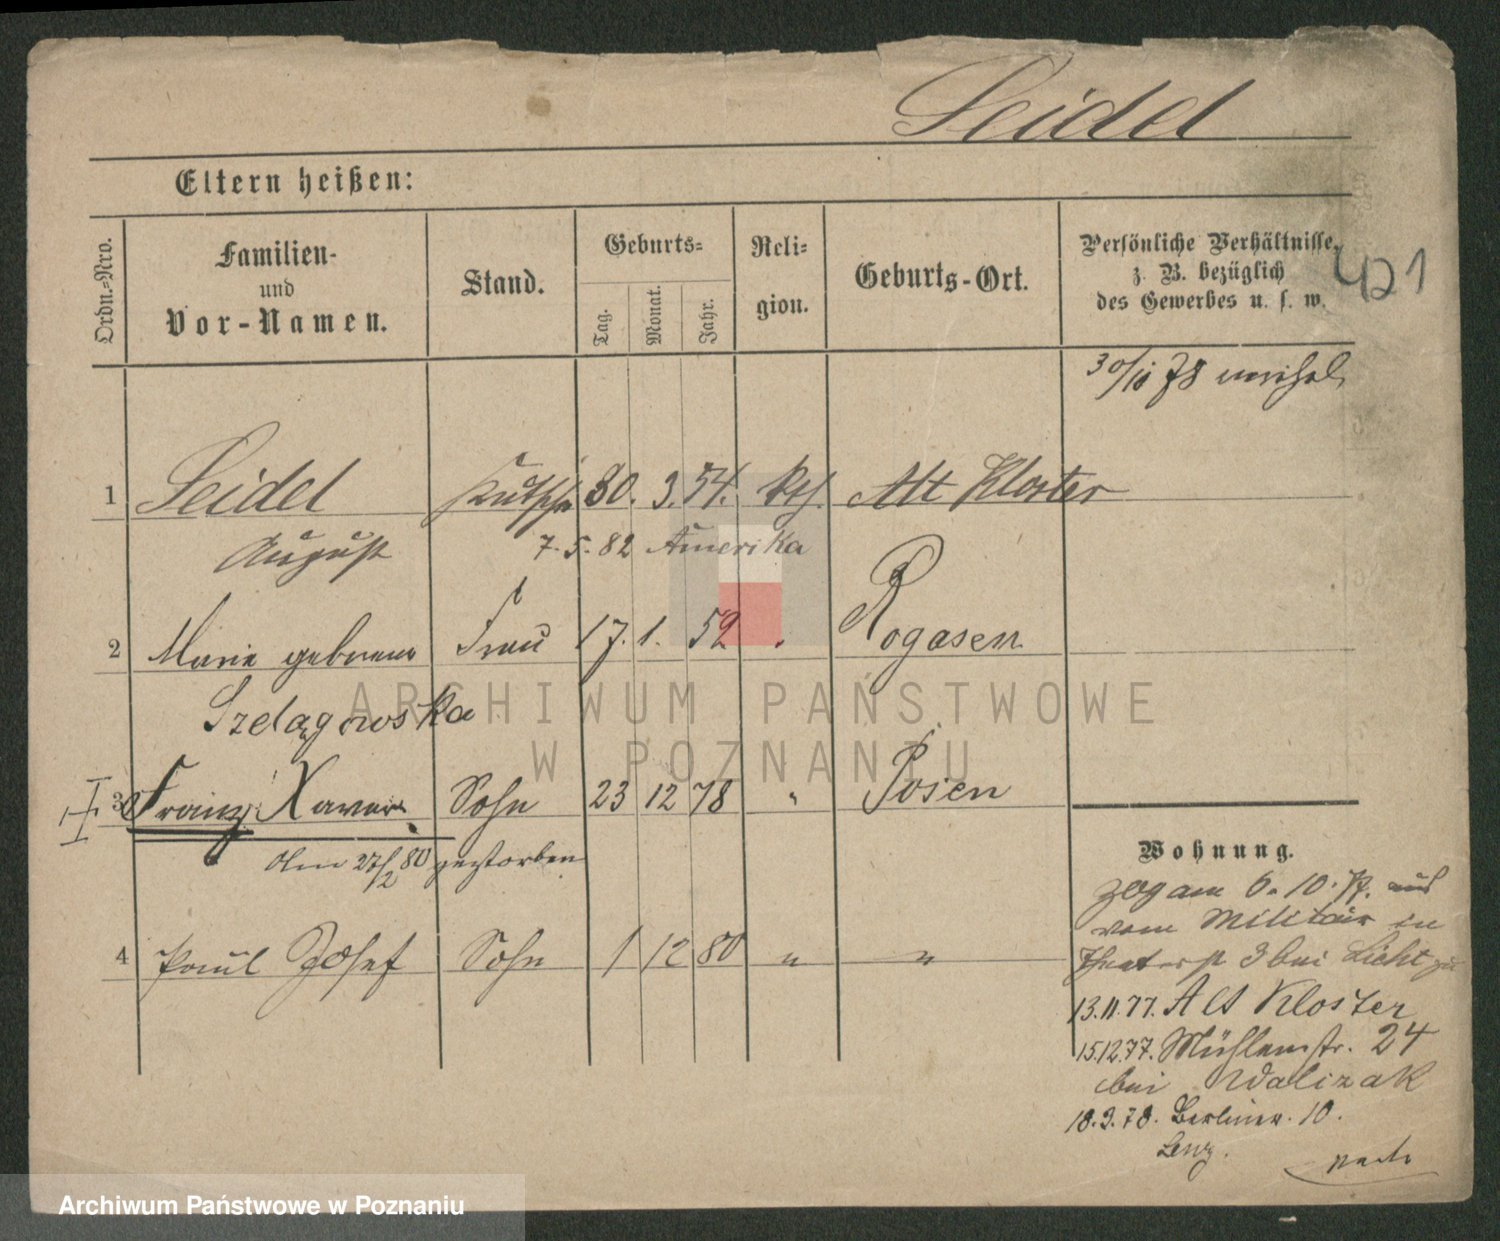 Seidel
Eltern heißen:
Ordn.=Nro.
Familien-
und
Vor-Namen.
Stand.
Geburts=
Tag.
Monat.
Jahr.
Reli=
gion.
Geburts-Ort.
Persönliche Verhältnisse,
z. B. bezüglich
des Gewerbes u. s. w.
421
30/10 78
1 Seidel Kutscher 30. 3. 54. kth. Alt Kloster
August 7.5.82 Amerika
2 Marie geborene Frau 17. 1. 52 " Rogasen
Szelągowska
3 Franz Xaver Sohn 23 12 78 " Posen
Am 27/2 80 gestorben
4 Paul Josef Sohn 1 12 80 " "
Wohnung.
zog am 6.10.77. aus
vom Militair in
Theaterstr 3 bei Licht zu
13.11.77. Alt Kloster
15.12.77. Mühlenstr. 24
bei Walizak
18.3.78. Berliner. 10.
Lenz.
ARCHIWUM PAŃSTWOWE
W POZNANIU
Archiwum Państwowe w Poznaniu